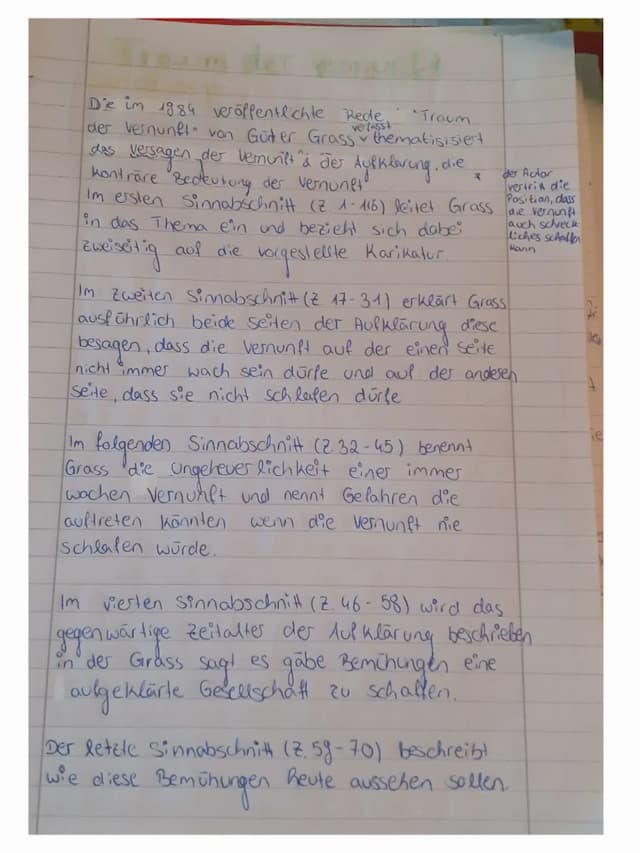 Die im 1984 veröffentlichte Rede "Traum
der Vernunft" von Güter Grass verfasst thematisisiert
das versagen der Vernunft & der Aufklärung, die
konträre Bedeutung der Vernunft *
Im ersten Sinnabschnitt (Z 1-16) leitet Grass
in das Thema ein und bezieht sich dabei
zweiseitig auf die vorgestellte Karikatur.
der Autor
vertritt die
Position, dass
die vernunft
auch schreck
liches schaffen
kann
Im zweiten Sinnabschnitt (Z. 17-31) erklärt Grass
ausführlich beide Seiten der Aufklärung diese
besagen, dass die Vernunft auf der einen Seite
nicht immer wach sein dürfe und auf der anderen
Seite, dass sie nicht schlafen dürfe
Im folgenden Sinnabschnitt (Z. 32-45) benennt
Grass die Ungeheuerlichkeit einer immer
wachen Vernunft und nennt Gefahren die
auftreten könnten wenn die Vernunft nie
schlafen würde.
Im vierten Sinnabschnitt (Z. 46-58) wird das
gegenwärtige Zeitalter der Aufklärung beschrieben
in der Grass sagt es gäbe Bemühungen eine
aufgeklärte Gesellschaft zu schaffen.
Der letzte Sinnabschnitt (Z. 59-70) beschreibt
wie diese Bemühungen heute aussehen sollen.